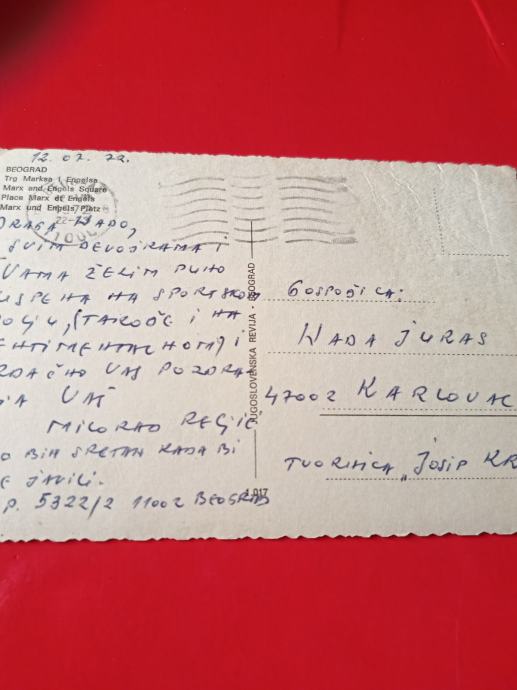 12. 07. 72.
BEOGRAD
Trg Marksa i Engelsa
Marx and Engels Square
Place Marx et Engels
Marx und Engels Platz
DRAGA NADO,
SVIM DEVOJKAMA I
VAMA ŽELIM PUNO
USPEHA NA SPORTSKOM
POLJU, (TAKOĐE I NA
SENTIMENTALNOM) I
SRDAČNO VAS POZDRA
VAŠ
MILORAD RELJIĆ
O BIH SRETAN KADA BI
E JAVILI.
P. 5322/2 11002 BEOGRAD
JUGOSLOVENSKA REVIJA - BEOGRAD
GOSPOĐICA:
NADA JURAS
47002 KARLOVAC
TVORNICA „JOSIP KR